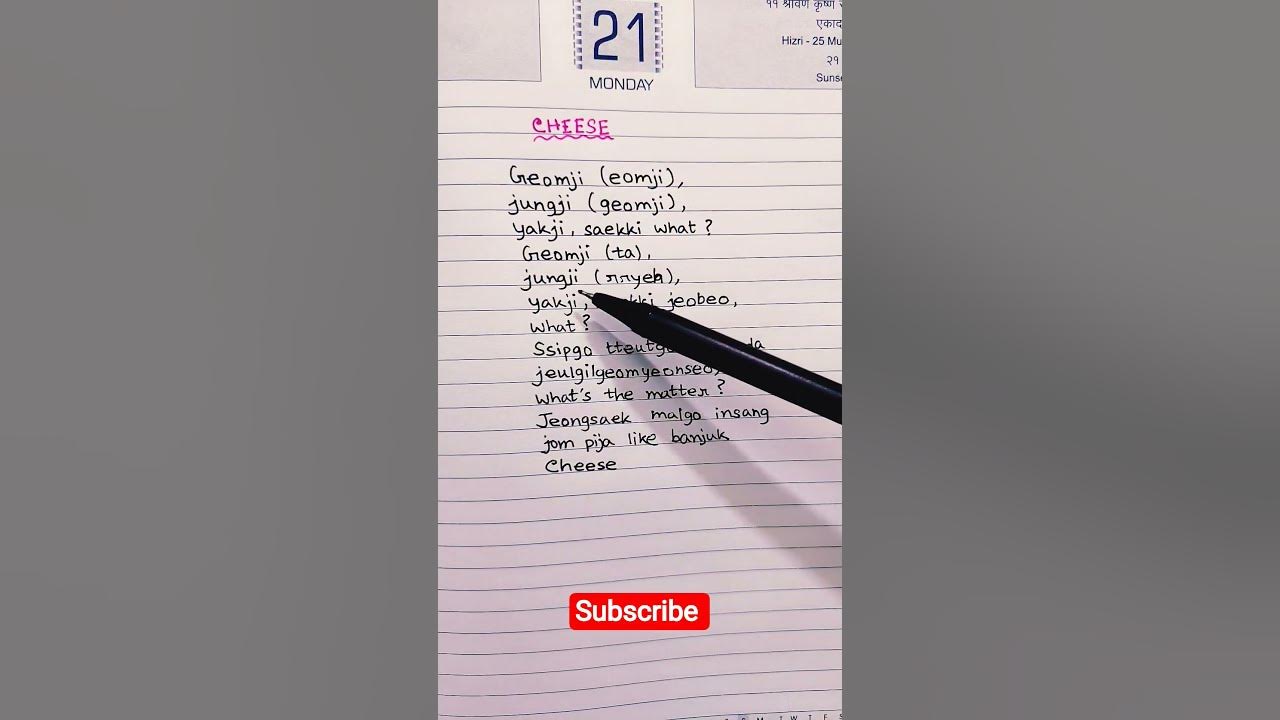 21
MONDAY
११ श्रावण कृष्ण
एकाद
Hizri - 25 Mu
२१
Sunse
CHEESE
Geomji (eomji),
jungji (geomji),
yakji, saekki what?
Geomji (ta),
jungji (rryeh),
yakji, jeobeo,
what?
Ssipgo
jeulgilgeomyeonseo,
what's the matter?
Jeongsaek malgo insang
jom pija like banjuk
Cheese
Subscribe
S M T W T F S